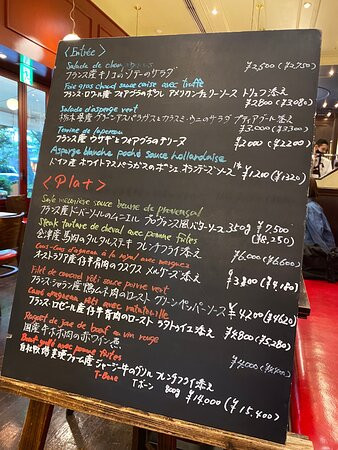 <Entrée>
Salade de champignons
フランス産キノコのソテーのサラダ ¥2,500 (¥2,750)
Foie gras chaud sauce américaine avec truffe
フランス・ロワール産フォアグラのポワレ アメリカンチェリーソース トリュフ添え ¥2800 (¥3080)
Salade d'asperge vert
栃木県産グリーンアスパラガスとカラスミ・ウニのサラダ ブッラータ添え ¥3,000 (¥3,300)
Terrine de lapereau
フランス産ウサギとフォアグラのテリーヌ ¥2000 (¥2200)
Asperge blanche poché sauce hollandaise
ドイツ産ホワイトアスパラガスのポシェ オランデーズソース 1本 ¥1,200 (¥1,320)
<Plat>
Sole meunière sauce beurre de provençal
フランス産ドーバーソールのムニエル プロヴァンス風バターソース 350g ¥7,500 (¥8,250)
Steak tartare de cheval avec pomme frites
会津産馬肉のタルタルステーキ フレンチフライ添え ¥6000 (¥6600)
オーストラリア産仔羊肉のクスクス メルゲーズ添え ¥3800 (¥4,180)
Filet de canard rôti sauce poivre vert
フランス・シャラン産鴨ムネ肉のロースト グリーンペッパーソース ¥4200 (¥4620)
Carré d'agneau rôti avec ratatouille
フランス・ロゼール産仔羊背肉のロースト ラタトゥイユ添え ¥4800 (¥5280)
Ragoût de joue de bœuf au vin rouge
国産牛ホホ肉の赤ワイン煮 ¥4000 (¥4400)
Bœuf grillé avec pomme frites
ジャージー牛のグリル フレンチフライ添え
T-Bone Tボーン 800g ¥14,000 (¥15,400)